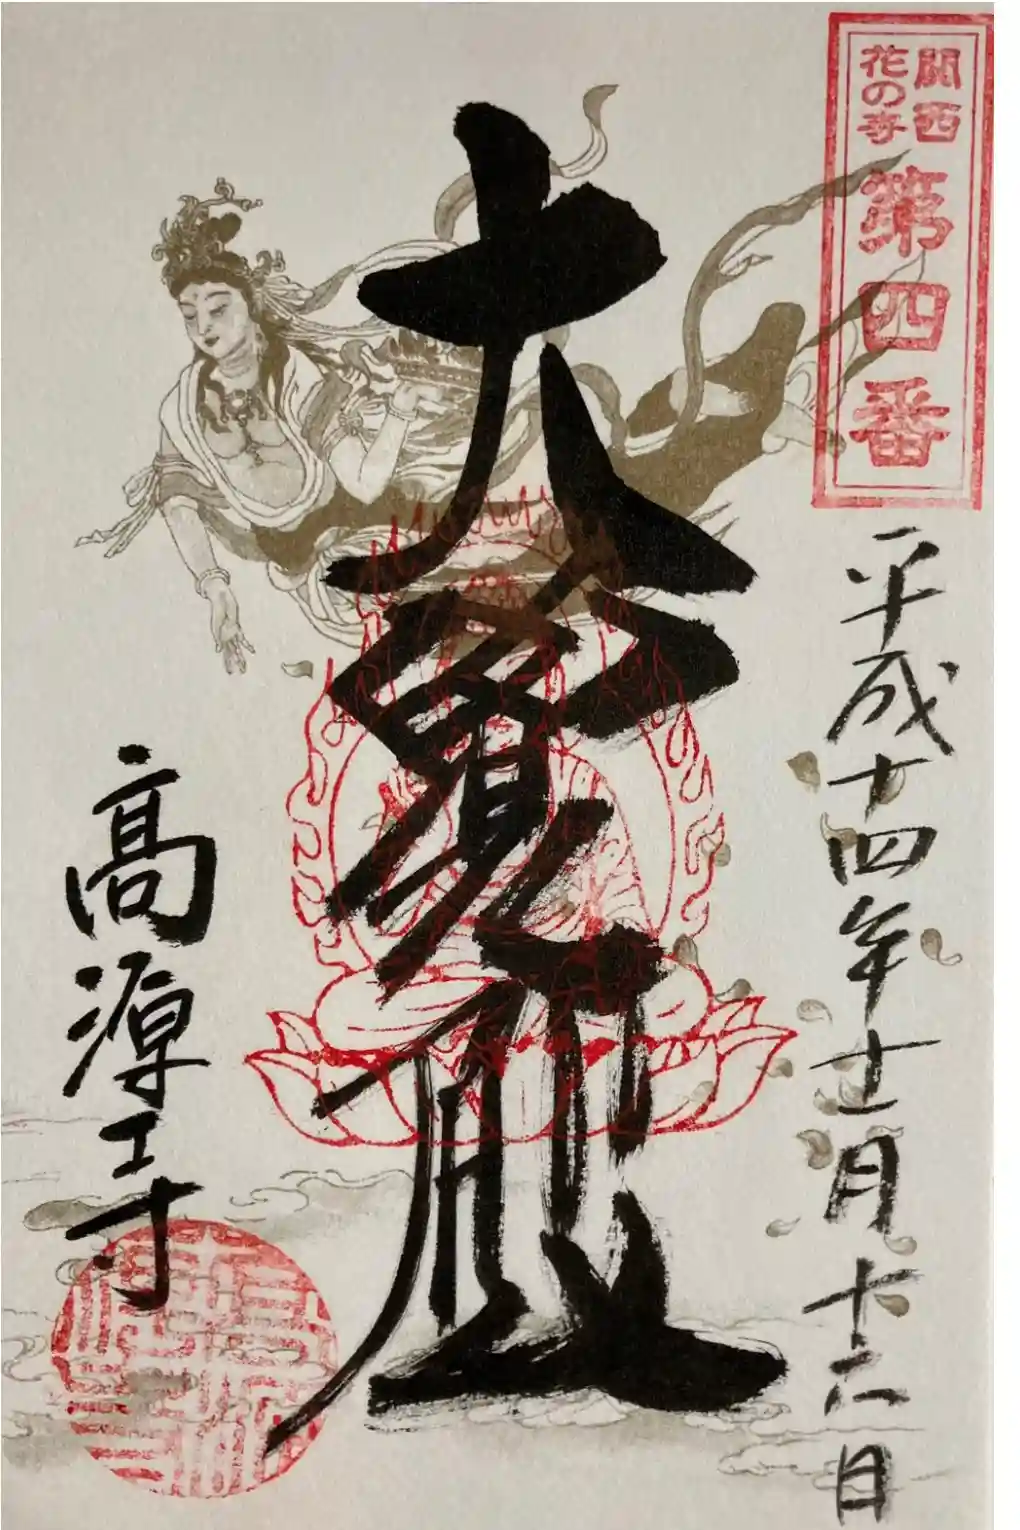 関西
花の寺
第四番
平成十四年十一月十六日
大覚殿
高源寺